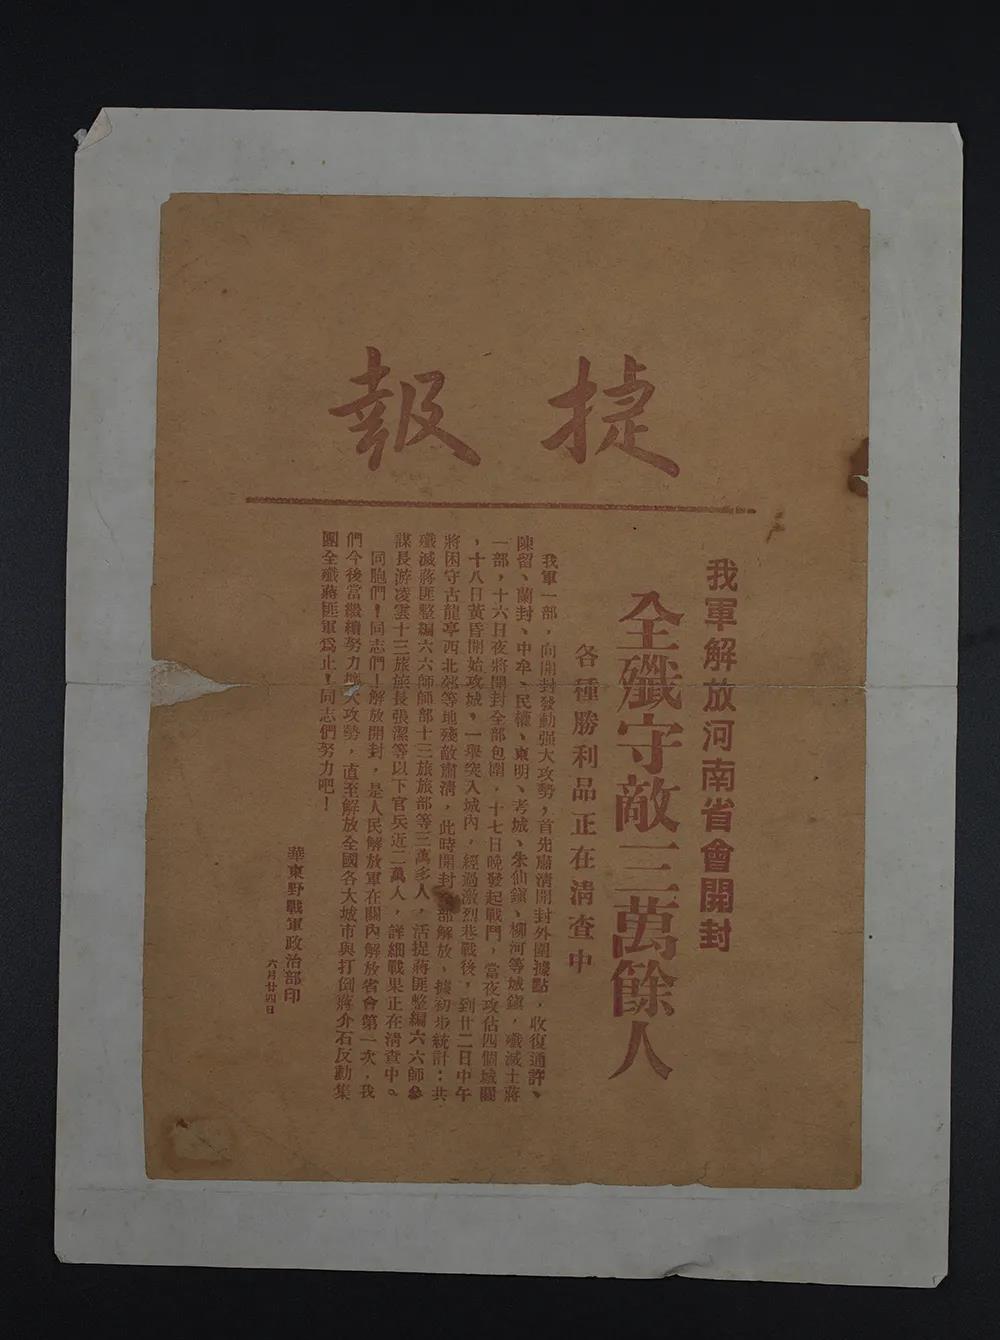 捷報
我軍解放河南省會開封
全殲守敵三萬餘人
各種勝利品正在清查中
我軍一部，向開封發動强大攻勢，首先肅清開封外圍據點，收復通許、
陳留、蘭封、中牟、民權、東明、考城、朱仙鎮、柳河等城鎮，殲滅土蔣
一部，十六日夜將開封全部包圍，十七日晚發起戰鬥，當夜攻佔四個城關
，十八日黃昏開始攻城、一舉突入城內，經過激烈巷戰後，到廿二日中午
將困守古龍亭西北郊等地殘敵肅清，此時開封全部解放，據初步統計：共
殲滅蔣匪整編六六師師部十三旅旅部等三萬多人，活捉蔣匪整編六六師參
謀長游凌雲十三旅旅長張潔等以下官兵近二萬人，詳細戰果正在清查中。
同胞們！同志們！解放開封，是人民解放軍在關內解放省會第一次，我
們今後當繼續努力擴大攻勢，直至解放全國各大城市與打倒蔣介石反動集
團全殲蔣匪軍爲止！同志們努力吧！
華東野戰軍政治部印
六月廿四日